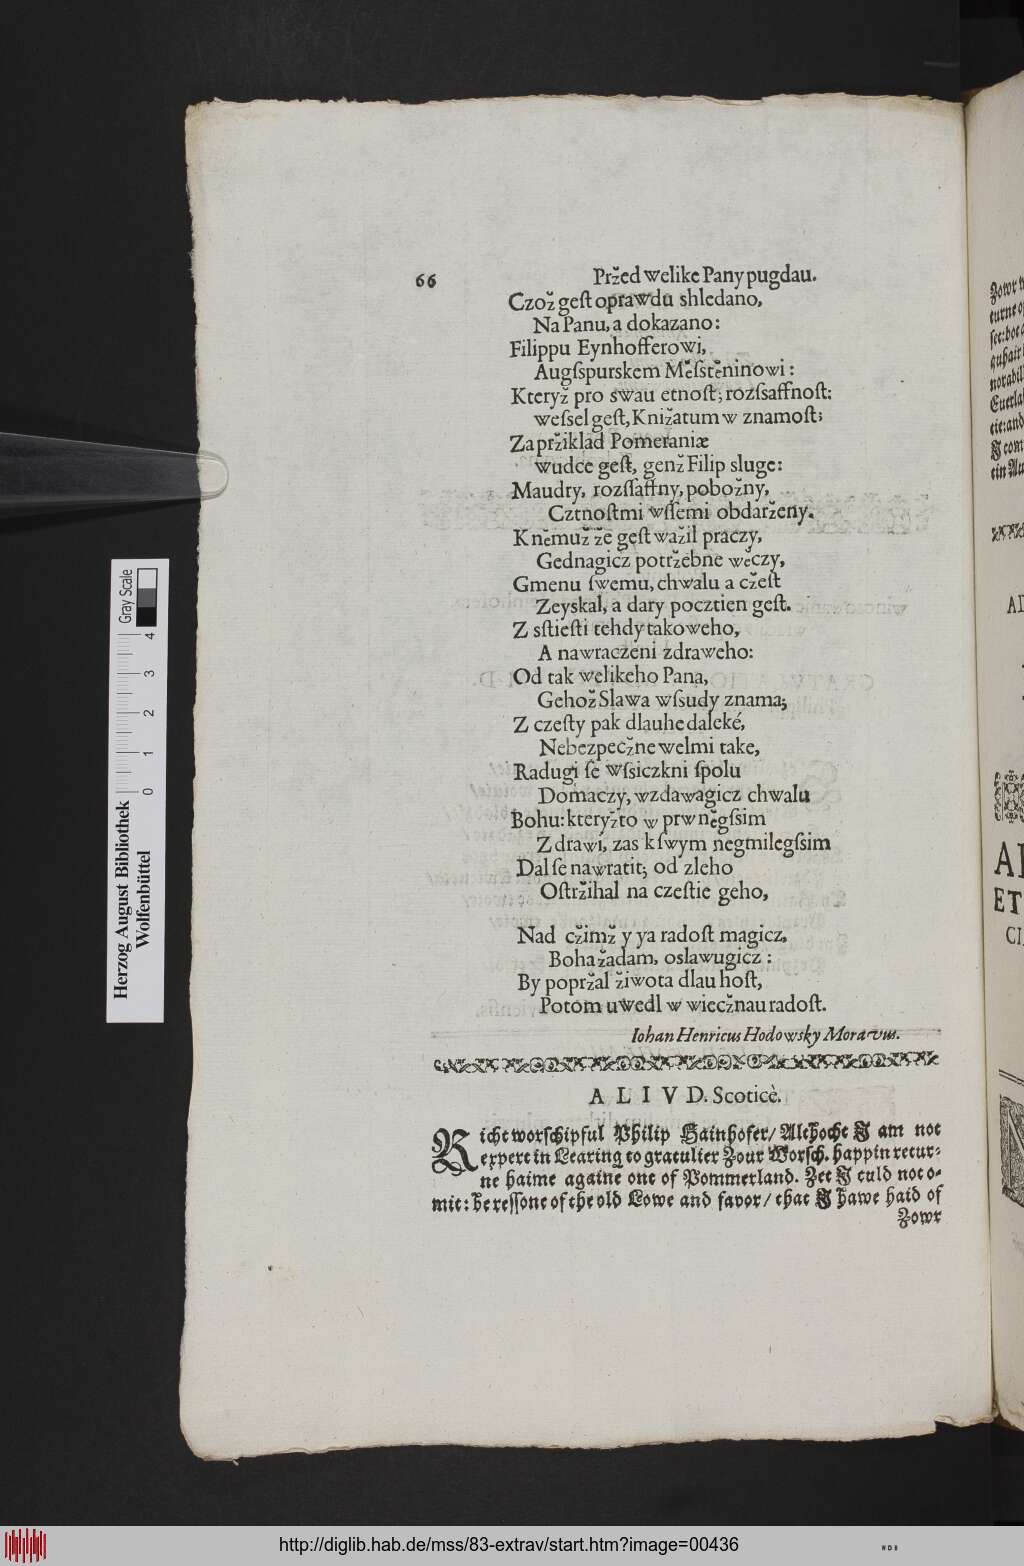 66
Przed welike Pany pugdau.
Czož gest oprawdu shledano,
Na Panu, a dokazano:
Filippu Eynhofferowi,
Augſspurskem Měſstěninowi:
Kteryž pro swau etnost; rozſsaffnost:
weſsel gest, Knižatum w znamost;
Za pržiklad Pomeraniæ
wudce gest, genž Filip sluge:
Maudry, rozſſaffny, pobožny,
Cztnostmi wſſemi obdarženy.
Kněmuž že gest wažil praczy,
Gednagicz potržebne wěczy,
Gmenu ſwemu, chwalu a cžest
Zeyskal, a dary pocztien gest.
Z sſtiesti tehdy takoweho,
A nawraczeni zdraweho:
Od tak welikeho Pana,
Gehož Slawa wſsudy znama;
Z czesty pak dlauhe daleké,
Nebezpečzne welmi take,
Radugi ſe wſsiczkni ſpolu
Domaczy, wzdawagicz chwalu
Bohu: kteryžto w prwněgſsim
Zdrawí, zas k ſwym negmilegſsim
Dal ſe nawratit; od zleho
Ostržihal na czestie geho,
Nad cžimž y ya radost magicz,
Boha žadam, oslawugicz:
By popržal žiwota dlauhost,
Potom uwedl w wiecžnau radost.
Iohan Henricus Hodowsky Moravus.
ALIVD. Scoticè.
Richt worſchipful Philip Hainhofer/ Althocht I am not
expert in Learing to gratulier Zour Worſch. happin retur-
ne haime againe ont of Pommerland. Zet I culd not o-
mit: be reſſone of the old Lowe and favor/ that I hawe haid of
Zowr
Herzog August Bibliothek
Wolfenbüttel
Gray Scale
0 1 2 3 4
http://diglib.hab.de/mss/83-extrav/start.htm?image=00436